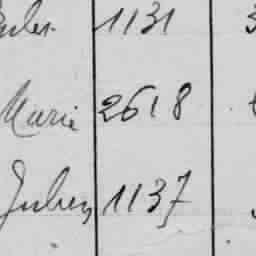 Jules 1131 3
Marie 2618
Julien 1137